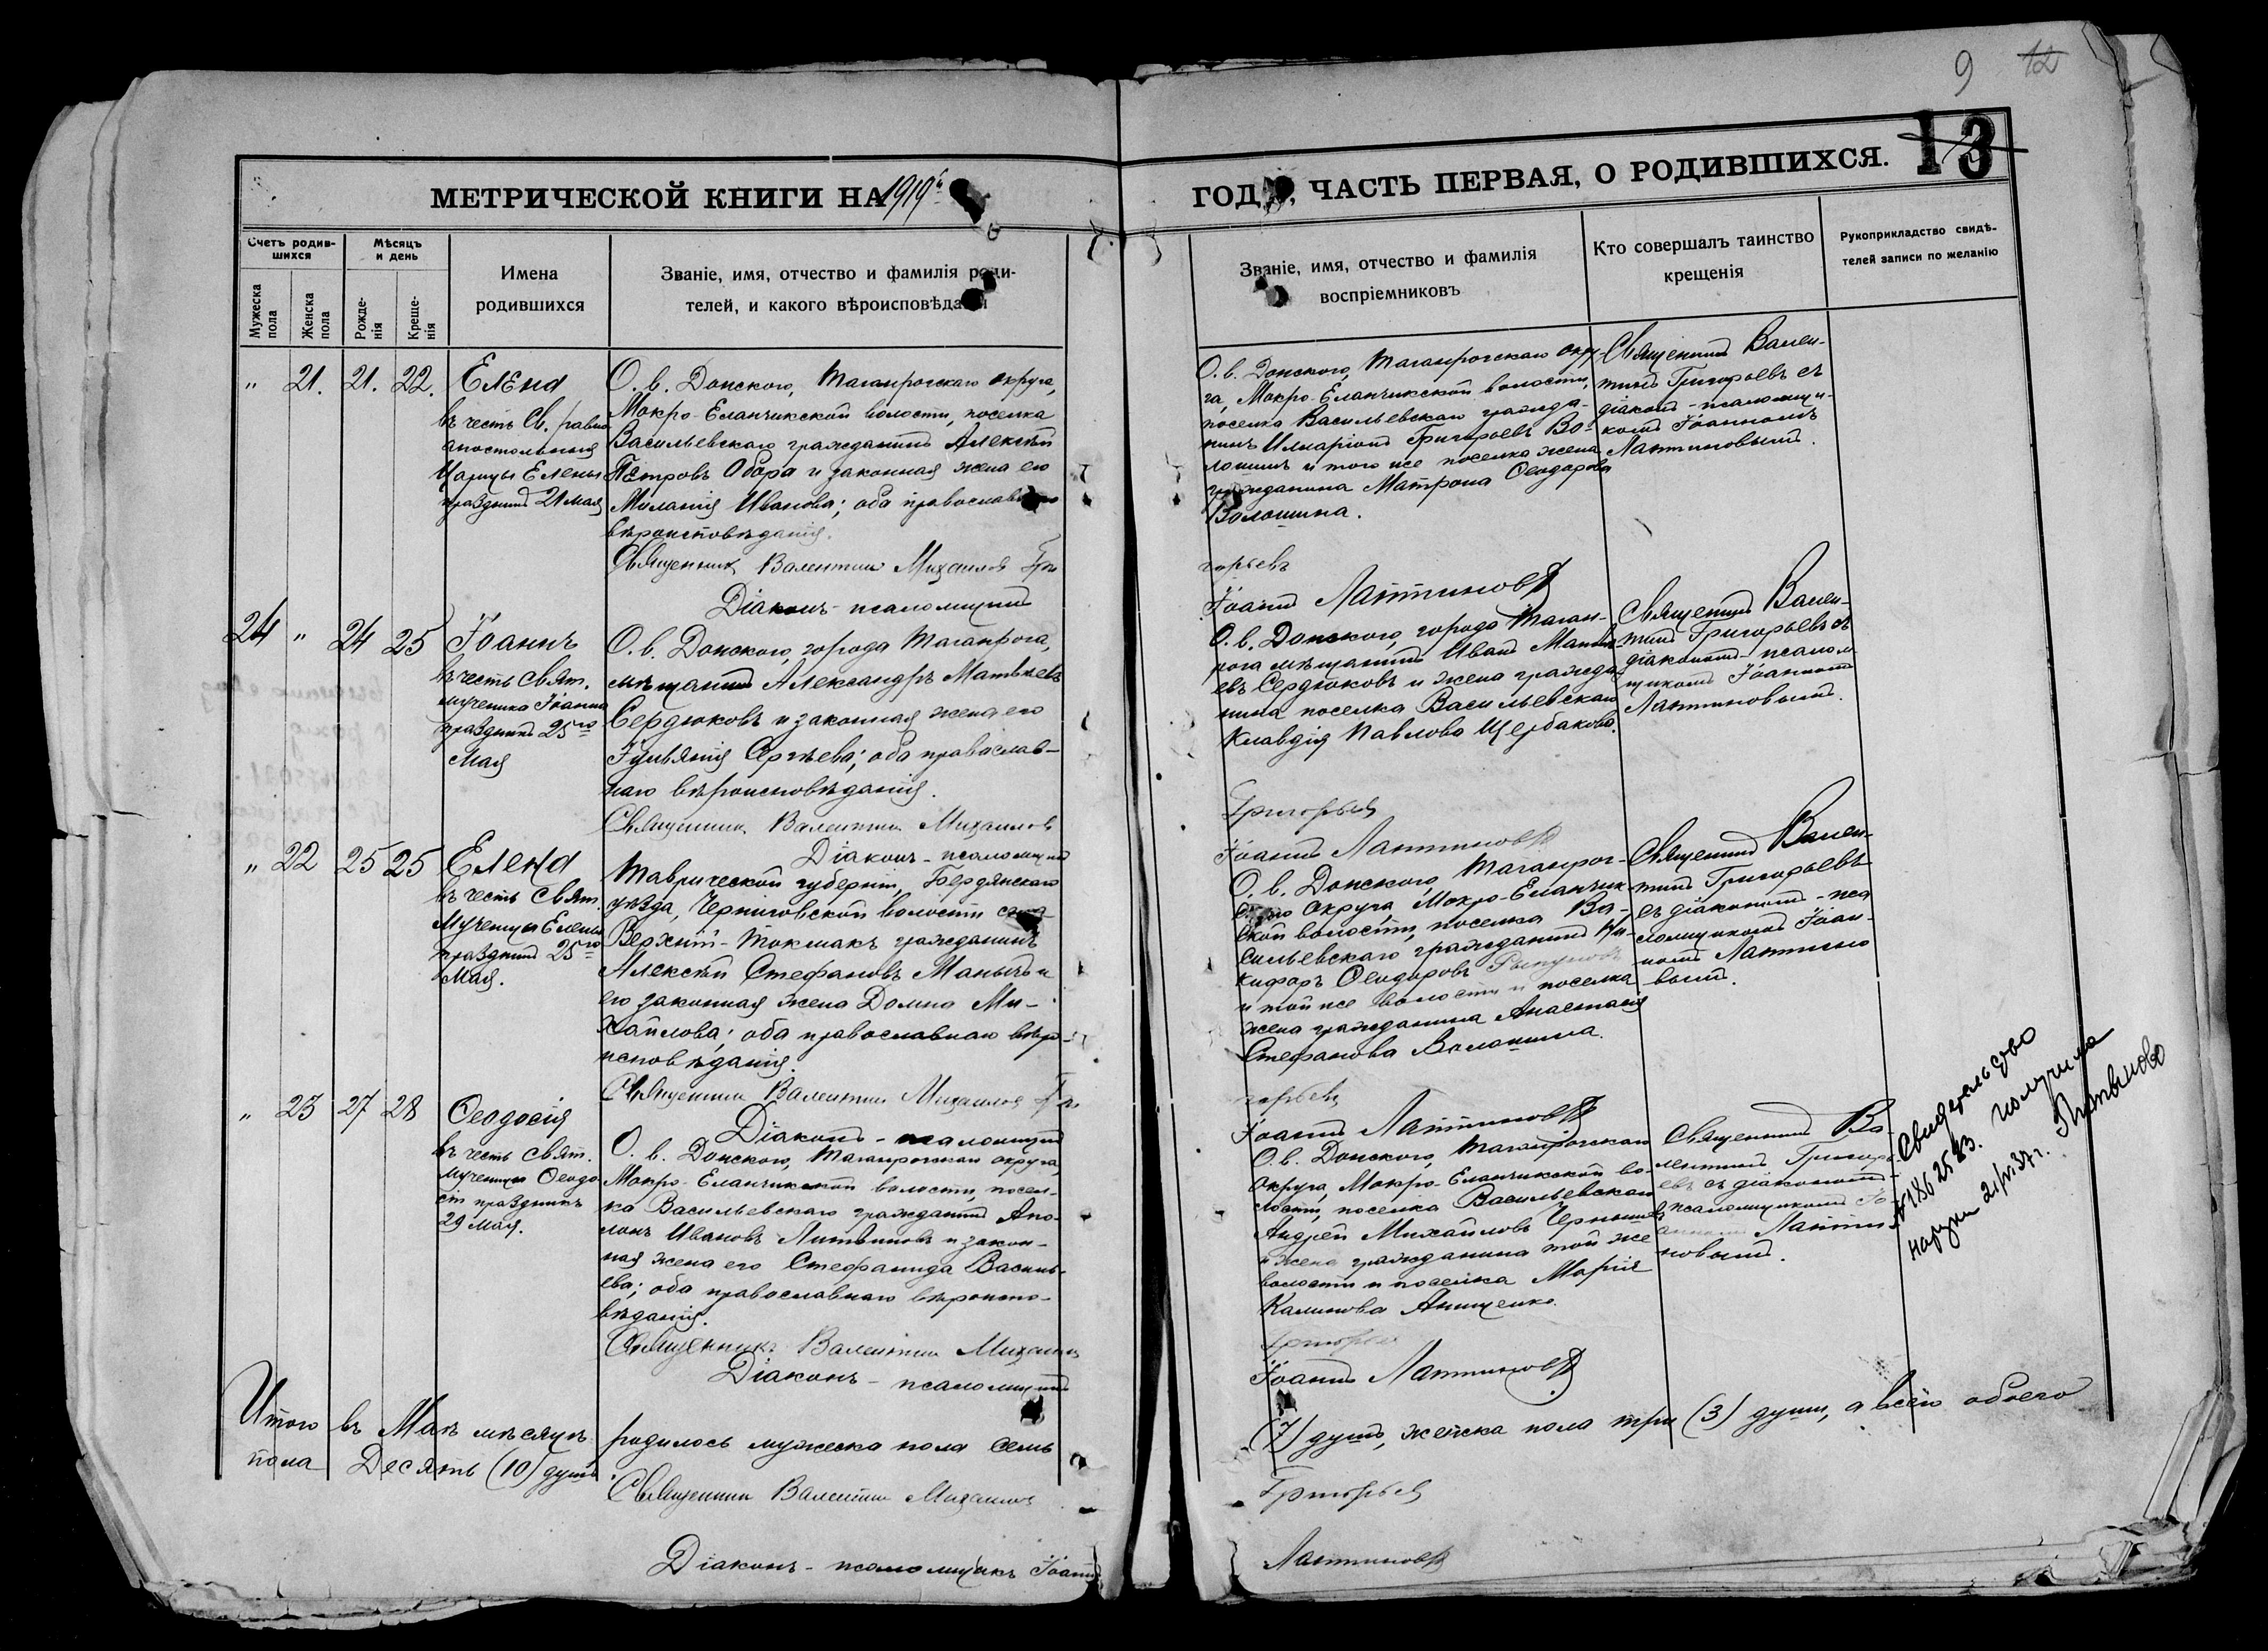 9 12
МЕТРИЧЕСКОЙ КНИГИ НА 1919й
ГОД , ЧАСТЬ ПЕРВАЯ, О РОДИВШИХСЯ. 13
Счетъ родив-
шихся
Мѣсяцъ
и день
Мужеска
пола
Женска
пола
Рожде-
нія
Креще-
нія
Имена
родившихся
Званіе, имя, отчество и фамилія роди-
телей, и какого вѣроисповѣданія
Званіе, имя, отчество и фамилія
воспріемниковъ
Кто совершалъ таинство
крещенія
Рукоприкладство свидѣ-
телей записи по желанію
" 21. 21. 22.
Елена
въ честь Св. равно
апостольныя
Царицы Елены
праздникъ 21 мая
О. в. Донского, Таганрогскаго округа,
Мокро-Еланчикской волости, поселка
Васильевскаго гражданинъ Алексѣй
Петровъ Обора и законная жена его
Миланія Иванова; оба православнаго
вѣроисповѣданія.
Священникъ Валентин Михаилов Гри
Діаконъ-псаломщикъ
О. в. Донского, Таганрогскаго окру
га, Мокро-Еланчикской волости,
поселка Васильевскаго гражда-
нинъ Илларіонъ Григорьевъ Во-
лошинъ и того же поселка жена
гражданина Матрона Ѳеодорова
Волошина.
горьевъ
Іоаннъ Лаптиновъ
Священникъ Вален-
тинъ Григорьевъ съ
діаконъ-псаломщи-
комъ Іоанномъ
Лаптиновымъ.
24 " 24 25
Іоаннъ
въ честь Свят.
мученика Іоанна
праздникъ 25го
Мая
О. в. Донского, города Таганрога,
мѣщанинъ Александръ Матвѣевъ
Сердюковъ и законная жена его
Іуліанія Сергѣева; оба православ-
наго вѣроисповѣданія.
Священникъ Валентин Михаилов
Діаконъ-псаломщикъ
О. в. Донского, города Таган-
рога мѣщанинъ Иванъ Матвѣ-
евъ Сердюковъ и жена гражда
нина поселка Васильевскаго
Клавдія Павлова Щербакова.
Григорьев
Іоаннъ Лаптиновъ
Священникъ Вален-
тинъ Григорьевъ съ
діакономъ-псалом
щикомъ Іоанномъ
Лаптиновымъ.
" 22 25 25
Елена
въ честь Свят.
Мученицы Елены
праздникъ 25го
Мая.
Таврической губерніи, Бердянскаго
уѣзда, Черниговской волости села
Верхній-Токмакъ гражданинъ
Алексѣй Стефановъ Манычъ и
его законная жена Домна Ми-
хайлова; оба православнаго вѣро-
исповѣданія.
Священникъ Валентин Михаилов Гри
Діаконъ-псаломщикъ
О. в. Донского, Таганрог-
скаго округа, Мокро-Еланчик-
ской волости, поселка Ва-
сильевскаго гражданинъ Ни-
кифоръ Ѳеодоровъ
и той же волости и поселка
жена гражданина Анастасія
Стефанова Волошина.
горьевъ
Іоаннъ Лаптиновъ
Священникъ Вален-
тинъ Григорьевъ
съ діакономъ-пса
ломщикомъ Іоан-
номъ Лаптино
вымъ.
" 23 27 28
Ѳеодосія
въ честь Свят.
мученицы Ѳеодо
сіи праздникъ
29 мая.
О. в. Донского, Таганрогскаго округа,
Мокро-Еланчикской волости, посел-
ка Васильевскаго гражданинъ Апо-
лонъ Ивановъ Литвиновъ и закон-
ная жена его Стефанида Василь-
ева; оба православнаго вѣроиспо-
вѣданія.
Священникъ Валентин Михаилов
Діаконъ-псаломщикъ
О. в. Донского, Таганрогскаго
округа, Мокро-Еланчикской во-
лости, поселка Васильевскаго
Андрей Михайловъ Чернышевъ
и жена гражданина той же
волости и поселка Марія
Калинова Анищенко.
Григорьев
Іоаннъ Лаптиновъ
Священникъ Ва-
лентинъ Григорь-
евъ съ діакономъ-
псаломщикомъ Іо
анномъ Лапти-
новымъ.
Свидетельство
№ 1862583. получила
21/VI 37 г. Литвинова
Итого въ Маѣ мѣсяцѣ родилось мужеска пола семь (7) душъ, женска пола три (3) души, а всего обоего
пола Десять (10) душъ.
Священникъ Валентин Михаилов Григорьев
Діаконъ-псаломщикъ Іоаннъ Лаптиновъ